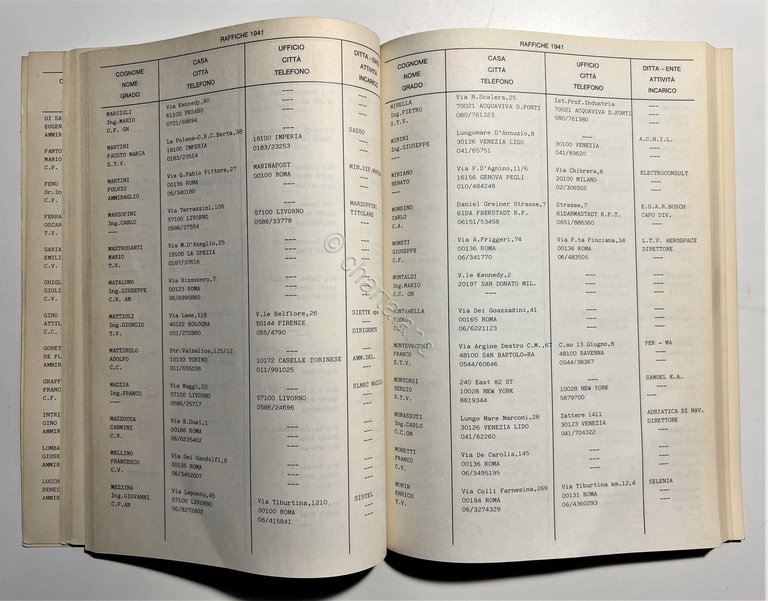 C
DI SA
EUGEN
AMMIR
FANTO
MARIO
C.F.
FENU
Dr.In
C.F.
FERRA
OSCAR
T.V.
GARIA
EMILI
C.V.
GHIGL
GIULI
C.V.
GINO
ATTIL
C.F.
GORET
DE FL
AMMIR
GRAFF
FRANC
C.F.
INTRI
GINO
AMMIR
LOMBA
GIUSE
AMMIR
LUCCH
BENED
AMMIR
RAFFICHE 1941
COGNOME
NOME
GRADO
CASA
CITTÀ
TELEFONO
UFFICIO
CITTÀ
TELEFONO
DITTA – ENTE
ATTIVITÀ
INCARICO
MARSIGLI
Ing.MARIO
C.F. GN
Via Kennedy,80
61100 PESARO
0721/68694
---
---
---
MARTINI
FAUSTO MARIA
S.T.V.
La Polena-C.R.C.Berta,38
18100 IMPERIA
0183/23514
18100 IMPERIA
0183/23253
SASSO
---
---
MARTINI
FULVIO
AMMIRAGLIO
Via Q.Fabio Pittore,27
00136 ROMA
06/340180
MARINAPOST
00100 ROMA
---
MIN.DIF.MARINA
---
MARZOPINI
Ing.CARLO
---
Via Terrazzini,106
57100 LIVORNO
0586/27554
57100 LIVORNO
0586/33778
MARZOPPINI
TITOLARE
MASTROSANTI
MARIO
T.V.
Via M.D'Azeglio,25
19100 LA SPEZIA
0187/37616
---
---
---
MATALUNO
Ing.GIUSEPPE
C.V. AN
Via Bizzozero,7
00123 ROMA
06/6995860
---
---
---
MATTIOLI
Ing.GIORGIO
T.V.
Via Lame,118
40122 BOLOGNA
051/272880
V.le Belfiore,26
50144 FIRENZE
055/4790
SIETTE spa
---
DIRIGENTE
MATTIROLO
ADOLFO
C.C.
Str.Valsalice,125/12
10133 TORINO
011/655036
10172 CASELLE TORINESE
011/991025
AMM.DEL.
MAZZIA
Ing.FRANCO
---
Via Maggi,20
57100 LIVORNO
0586/25717
57100 LIVORNO
0586/24696
ELMEC
---
---
MAZZOCCA
CARMINI
C.V.
Via B.Dusi,1
00166 ROMA
06/6235402
---
---
---
MELLINO
FRANCESCO
C.V.
Via Dei Gandolfi,6
00135 ROMA
06/3452007
---
---
---
MEZZINA
Ing.GIOVANNI
C.F.AN
Via Leponto,45
57100 LIVORNO
06/8272802
Via Tiburtina,1210
00100 ROMA
06/415841
SISTEL
---
---
RAFFICHE 1941
COGNOME
NOME
GRADO
CASA
CITTÀ
TELEFONO
UFFICIO
CITTÀ
TELEFONO
DITTA – ENTE
ATTIVITÀ
INCARICO
MIRELLA
Ing.PIETRO
S.T.V.
Via N.Scalera,25
70021 ACQUAVIVA D.FONTI
080/761323
Ist.Prof.Industria
70021 ACQUAVIVA D.FONTI
080/761380
---
---
---
MONINI
Ing.GIUSEPPE
---
Lungomare D'Annuzio,8
30126 VENEZIA LIDO
041/65751
---
30100 VENEZIA
041/89620
A.C.N.I.L.
---
---
MIRIANO
RENATO
---
Via F.D'Agnino,11/6
16156 GENOVA PEGLI
010/484248
Via Chitrera,8
20100 MILANO
02/306502
ELECTROCONSULT
---
---
MONDINO
CARLO
C.A.
Daniel Greiner Strasse,7
61DA EBERSTADT R.F.
06151/53458
Strasse,7
61DARMASTADT R.F.T.
0651/886360
E.S.A.R.BOSCH
CAPO DIV.
---
MONETI
GIUSEPPE
C.F.
Via A.Friggeri,74
00136 ROMA
06/341770
Via P.ta Pinciana,34
00136 ROMA
06/483505
L.T.V. AEROSPACE
DIRETTORE
---
MONTALDI
Ing.MARIO
C.C. GN
V.le Kennedy,2
20197 SAN DONATO MIL.
---
---
---
---
---
---
---
MONTANELLA
PIERO
C.C.
Via Dei Goazzadini,41
00165 ROMA
06/6221123
---
---
---
---
---
---
MONTEVECCHI
FRANCO
S.T.V.
Via Argine Destro C.M.,67
48100 SAN BARTOLO-RA
0544/60646
C.so 13 Giugno,8
48100 RAVENNA
0544/38367
FER – MA
---
---
MONTORSI
SERGIO
S.T.V.
240 East 82 ST
10028 NEW YORK
8619344
---
10028 NEW YORK
5679700
SAMUEL K.A.
---
---
MORASSUTI
Ing.CARLO
C.C.GN
Lungo Mare Marconi,28
30126 VENEZIA LIDO
041/62260
Zattere 1411
30123 VENEZIA
041/704322
ADRIATICA DI NAV.
DIRETTORE
---
MORETTI
FRANCO
C.V.
Via De Carolis,145
00136 ROMA
06/3495195
---
---
---
---
---
---
MORIN
ENRICO
T.V.
Via Colli Farnesina,269
00194 ROMA
06/3274329
Via Tiburtina km.12,4
00131 ROMA
06/4360293
SELENIA
---
---